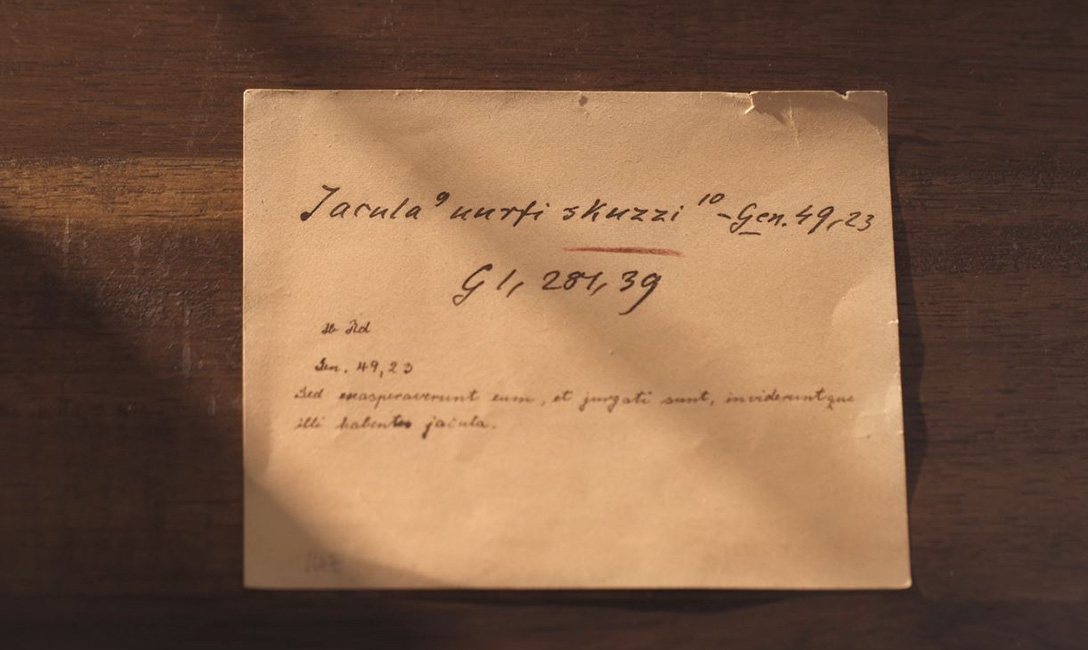 Jacula⁹ uurfi skuzzi¹⁰ - Gen. 49,23
G 1, 281, 39
Jb Rd
Gen. 49,23
Sed exasperaverunt eum, et jurgati sunt, invideruntque
illi habentes jacula.